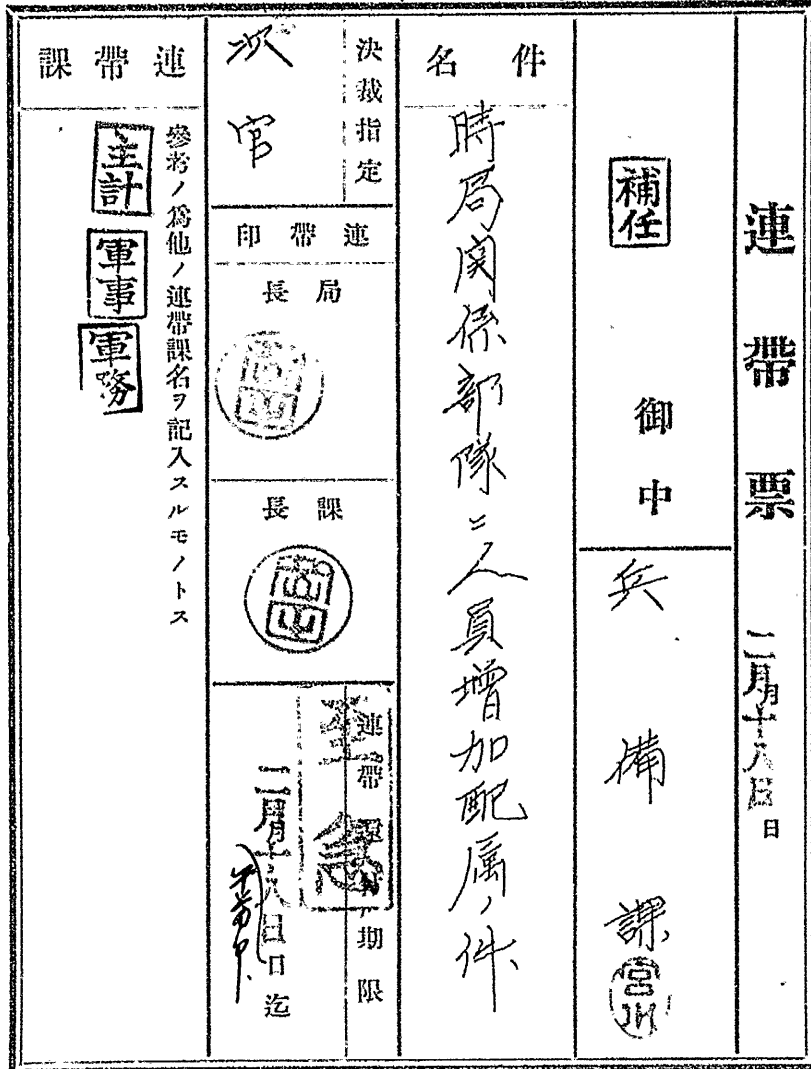 連帶票
二月十八日
補任 御中
兵備課 宮川
件名
時局関係部隊ニ人員増加配属ノ件
決裁指定
次官
連帶印
局長
課長
連帶 期限
至急
二月十八日迄
午前中
連帶課
參考ノ爲他ノ連帶課名ヲ記入スルモノトス
主計 軍事 軍務